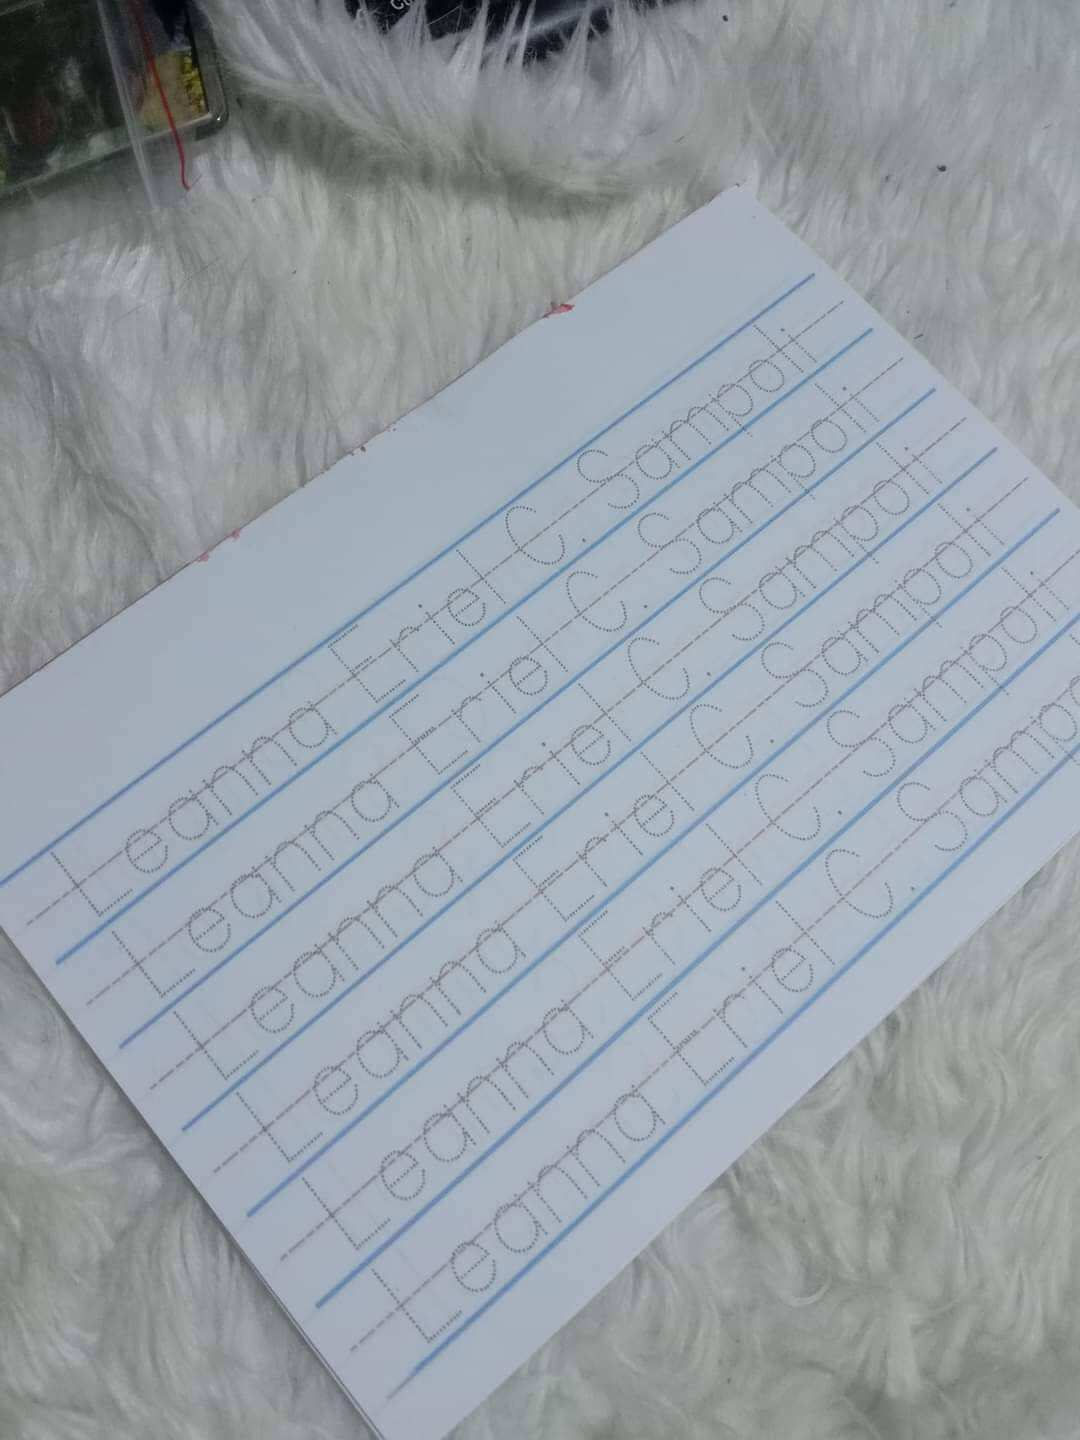 Leanna Eriel C. Sampoli
Leanna Eriel C. Sampoli
Leanna Eriel C. Sampoli
Leanna Eriel C. Sampoli
Leanna Eriel C. Sampoli
Leanna Eriel C. Sampo